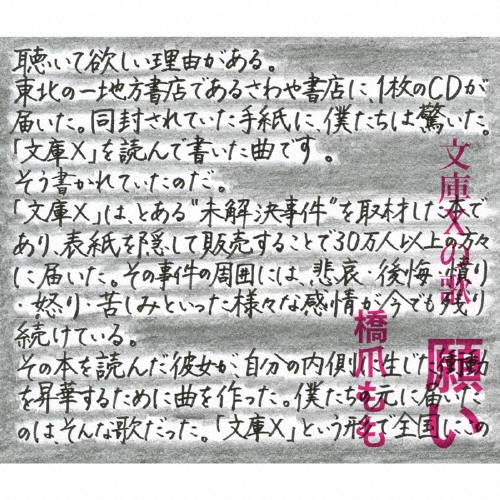 聴いて欲しい理由がある。
東北の一地方書店であるさわや書店に、1枚のCDが
届いた。同封されていた手紙に、僕たちは驚いた。
「文庫X」を読んで書いた曲です。
そう書かれていたのだ。
「文庫X」は、とある“未解決事件”を取材した本で
あり、表紙を隠して販売することで30万人以上の方々
に届いた。その事件の周囲には、悲哀・後悔・憤り
・怒り・苦しみといった様々な感情が今でも残り
続けている。
その本を読んだ彼女が、自分の内側に生じた衝動
を昇華するために曲を作った。僕たちの元に届いた
のはそんな歌だった。「文庫X」という形で全国にこの
文庫Xの歌
願い
橋爪もも